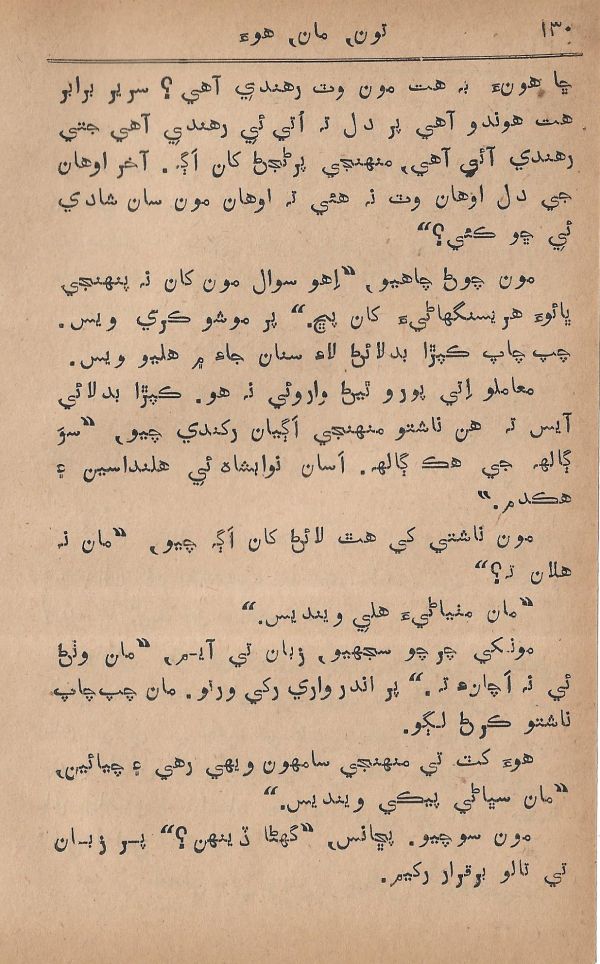 ۱۳۰
تون, مان, هوءَ
ڇا هوءَ به هت مون وٽ رهندي آهي؟ سرير برابر
هت هوندو آهي پر دل ته اُتي ئي رهندي آهي جتي
رهندي آئي آهي, منهنجي پرڻجڻ کان اڳ. آخر اوهان
جي دل اوهان وٽ نه هئي ته اوهان مون سان شادي
ئي ڇو ڪئي؟“
مون چوڻ چاهيو, “اِهو سوال مون کان نه پنهنجي
ڀائوءَ هريسنگهاڻيءَ کان پڇ.“ پر موشو ڪري ويس.
چپ چاپ ڪپڙا بدلائڻ لاءِ سنان جاءِ ۾ هليو ويس.
معاملو اِتي پورو ٿيڻ وارو ئي نه هو. ڪپڙا بدلائي
آيس ته هن ناشتو منهنجي اڳيان رکندي چيو, “سؤ
ڳالهه جي هڪ ڳالهه. اَسان نوابشاهه ئي هلنداسين ۽
هڪدم.“
مون ناشتي کي هٿ لائڻ کان اڳ چيو, “مان نه
هلان ته؟“
“مان مٺياڻيءَ هلي وينديس.“
مونکي چرچو سجهيو, زبان تي آيم, “مان وٺڻ
ئي نه اَچانءِ ته.“ پر اندر واري رکي ورتو. مان چپ چاپ
ناشتو ڪرڻ لڳو.
هوءَ کٽ تي منهنجي سامهون ويهي رهي ۽ چيائين,
“مان سڀاڻي پيڪي وينديس.“
مون سوچيو. پڇانس, “گهڻا ڏينهن؟“ پر زبان
تي تالو برقرار رکيم.